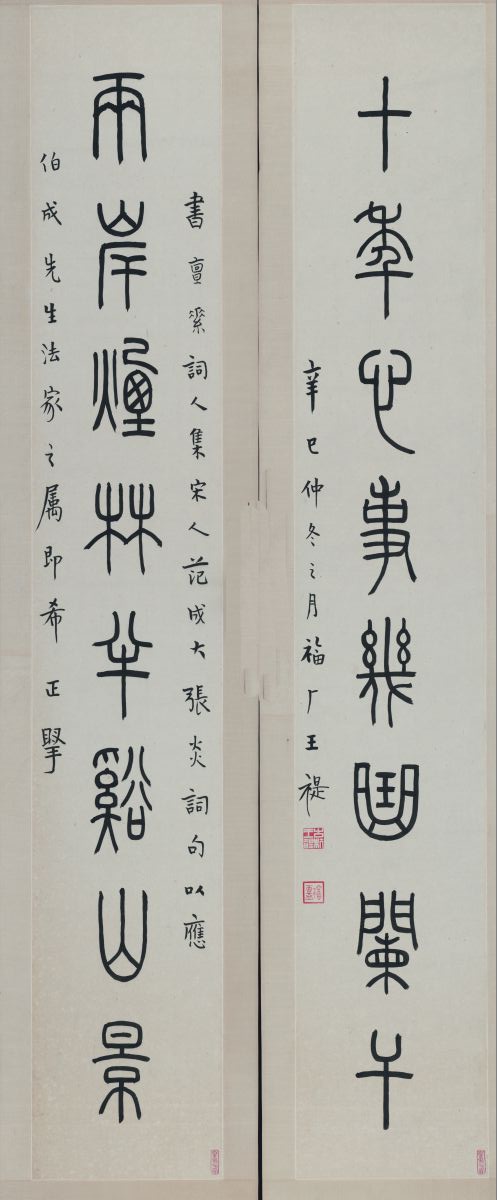 十年心事幾曲闌干
辛巳仲冬之月福厂王禔
書亶素詞人集宋人范成大張炎詞句以應
兩岸煙林半谿山景
伯成先生法家之属即希正掔